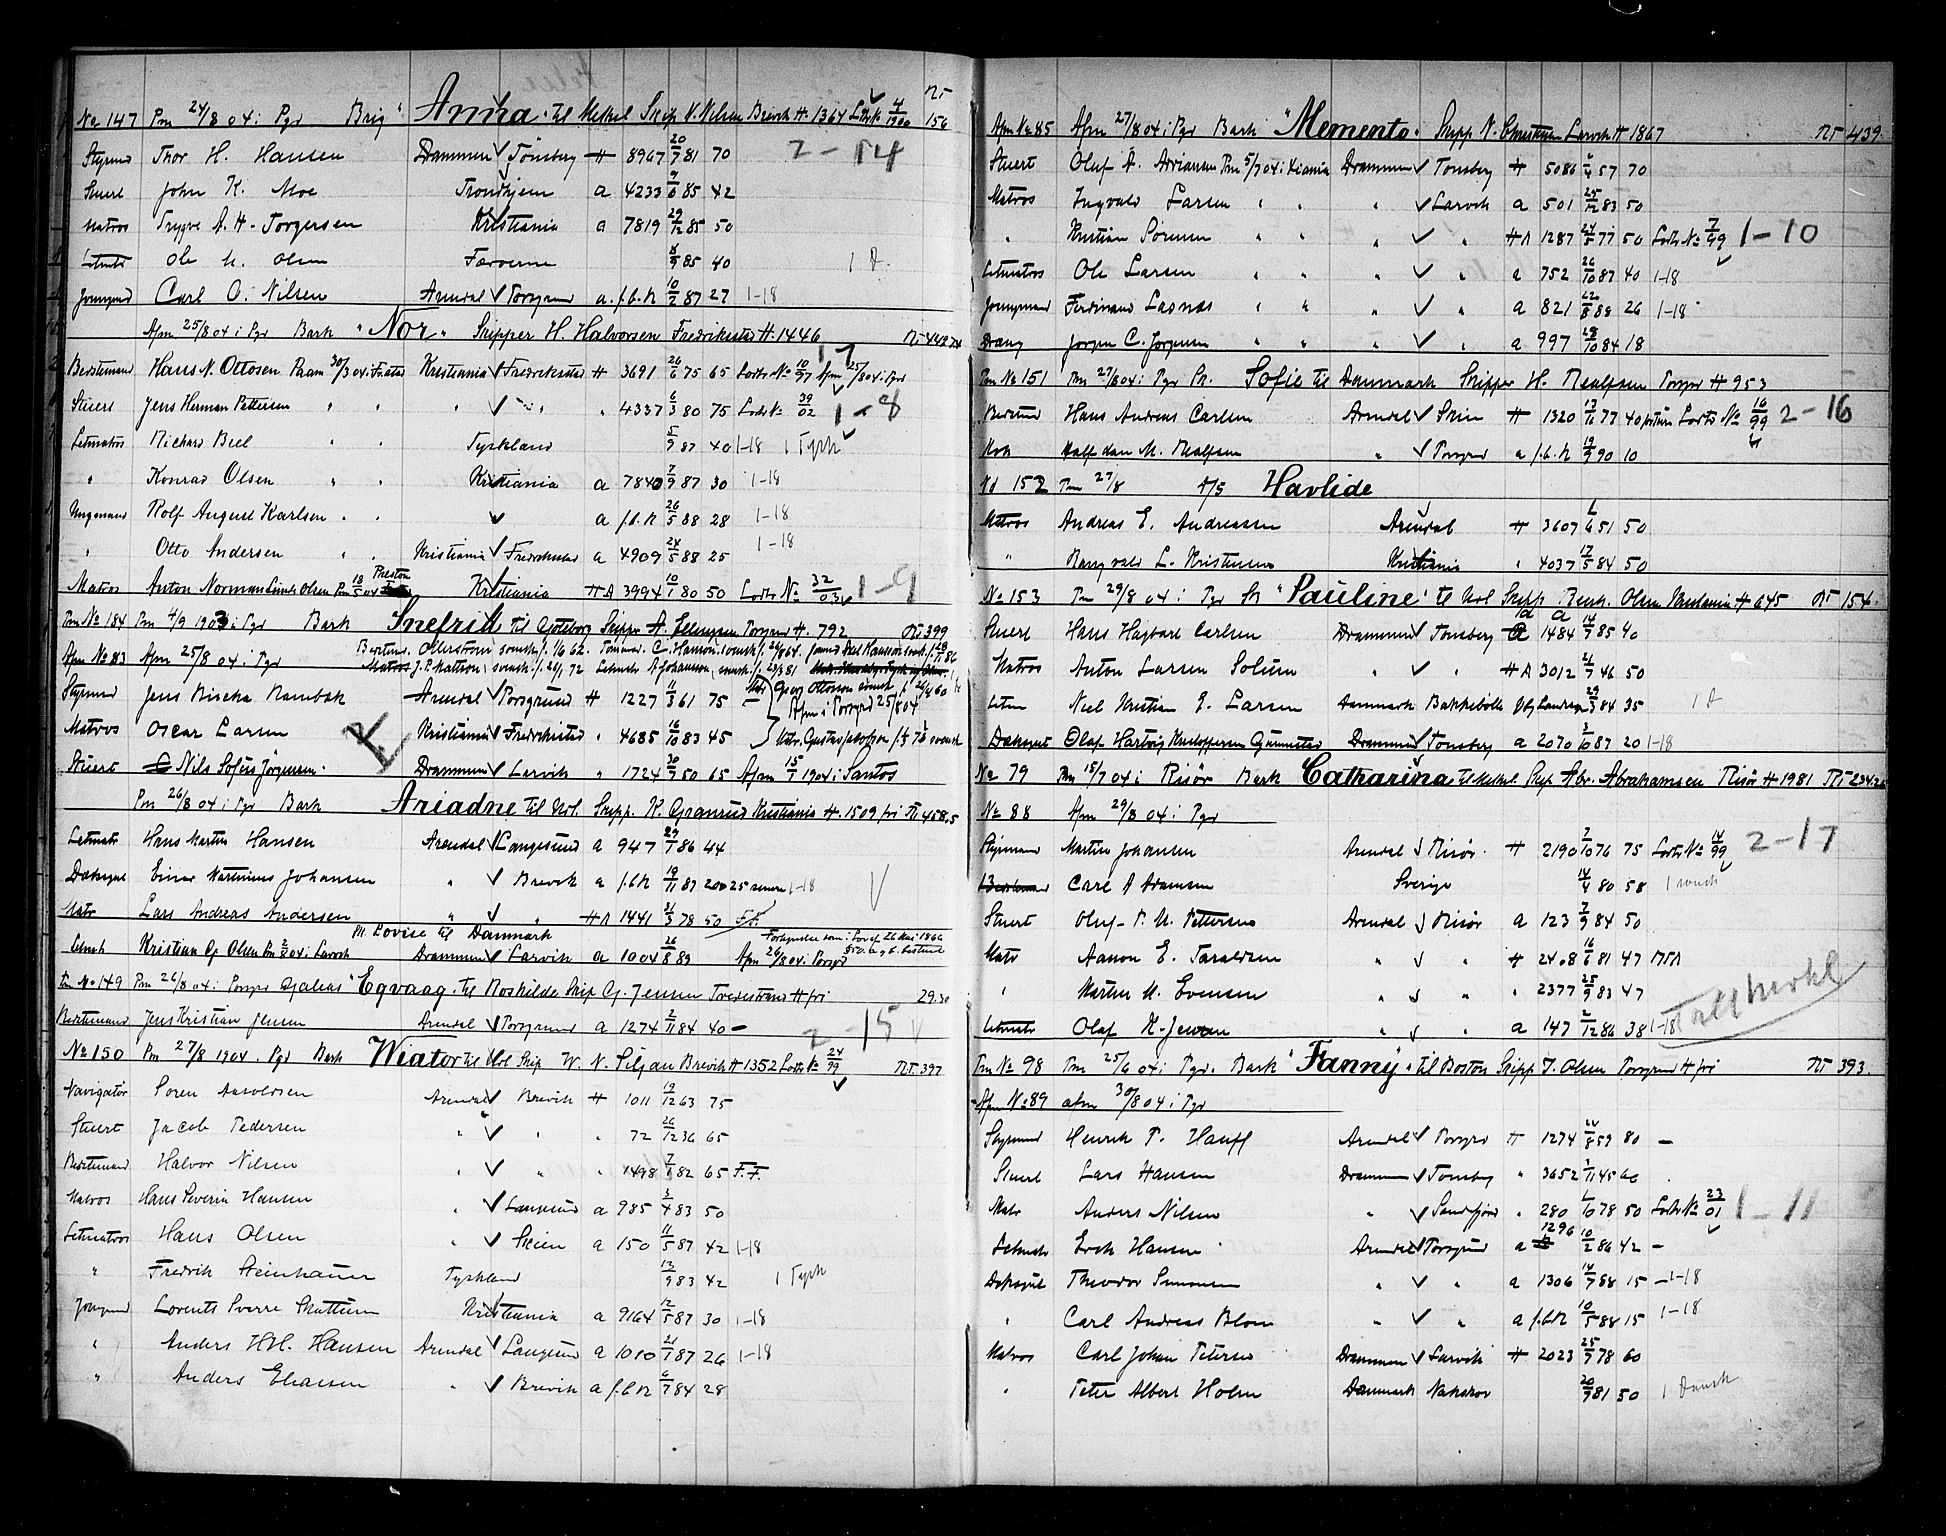 No 147 Pm 24/8 04 i Pgr Brig "Anna" til Skip N. Nilsen Brevik H 1364 4/1900 NT 156
Styrmd Thor H. Hansen Drammen Tønsberg H 8967 20/7 81 70 2-14
Stuert John K. Moe Trondhjem a 4233 9/6 85 42
Matros Trygve A. H. Torgersen Kristiania a 7819 29/12 85 50
Letmatr Ole M. Olsen Færøerne 8/9 85 40 1 D.
Jungmd Carl O. Nilsen Arendal Porsgrund a. f.b.N 10/2 87 27 1-18
Afm 25/8 04 i Pgr Bark "Nor" Skipper H. Halvorsen Fredrikstad H. 1446
Bedstemand Hans N. Ottosen Paam 30/3 04 i Kristiania Fredrikstad H 3691 26/6 75 65 Lods No 10/97 Afm 25/8 04 i Pgr 1-7
Stuert Jens Herman Pettersen " " " 4337 6/3 80 75 Lods No 39/02 1-8
Letmatros Richard Biel " " Tyskland 5/9 87 40 1-18 1 Tysk
" Konrad Olsen " " Kristiania a 7840 7/9 87 30 1-18
Ungmand Rolf August Karlsen " " a f.b.N 26/5 88 28 1-18
" Otto Andersen " " Kristiania Fredrikstad a 4909 24/5 88 25 1-18
Matros Anton Norman Olsen Pm 18/5 04 Preston Kristiania H A 3994 10/1 80 50 Lods No 32/03 1-9
Pm No 184 Pm 4/9 1903 i Pgr Bark Snefrid til Gøteborg Skipper A. Ellingsen Porsgrd H. 792 NT 399
Afm No 83 Afm 25/8 04 i Pgr
Styrmand Jens Arendal Porsgrund H 1227 11/3 61 75 Georg Ottoson svensk f. 26/4 60
Afm i Porsgrd 25/8 04
Matros Oscar Larsen Kristiania Fredrikstad " 4685 16/10 83 45 Matr. Gustaf Jakobson svensk
Stuert Nils Sofus Jørgensen Drammen Larvik " 1724 30/9 50 65 Afm 15/7 1904 i Santos
Pm 26/8 04 i Pgr Bark Ariadne til Hol. Skipp. K. Granrud Kristiania H 1509 fri NT 458,5
Letmatr Hans Martin Hansen Arendal Langesund a 947 29/7 86 44
Dæksgut Einar Martinius Johansen " Brevik a f.b.N 19/11 87 20 1-18
Matr Lars Andreas Andersen " " H A 1441 31/3 78 50 F.F.
M. Lovise til Danmark
Letmatr Kristian Olsen Pm 04 i Larvik Drammen Larvik a 1004 26/8 89 Afm 26/8 04 i Porsgr
Pm No 149 Pm 26/8 04 i Porsgr Galeas "Egvaag" til Roskilde Skip G. Jensen Tvedestrand H fri 29.30
Bedstemand Jens Kristian Jensen Arendal Porsgrund a 1274 2/11 84 40 - 2-15
No 150 Pm 27/8 1904 i Pgr Bark Wiator til Hol Skip W. N. Siljan Brevik H 1352 Lods No 24/99 NT. 397
Navigatør Søren Arendal Brevik H 1011 19/12 63 75
Stuert Jacob Pedersen " " " 72 26/12 36 65
Bedstemand Halvor Nilsen " " " 1498 7/6 82 65 F.F.
Matros Hans Severin Hansen " Langesund a 985 3/4 83 50
Letmatros Hans Olsen " Skien a 150 11/5 87 42 1-18
" Fredrik Steinhauer Tyskland 13/9 83 42 1 Tysk
Jungmd Lorents Sverre Skattum Kristiania a 9164 12/5 87 30 1-18
" Anders H. H. Hansen Arendal Langesund a 1010 21/1 87 26 1-18
" Anders Eliassen " Brevik a f.b.N 6/7 84 28
Afm No 85 Afm 27/8 04 i Pgr Bark "Memento" Skipp N. Christensen Larvik H 1867 NT 439.
Stuert Oluf A. Adriansen Pm 5/7 04 i Xiania Drammen Tønsberg H 5086 57 70
Matros Ingvald Larsen " " " Larvik a 501 25/12 83 50
" Kristian Sørensen " " " " H A 1287 24/5 77 50 Lods No 7/99 1-10
Letmatros Ole Larsen " " " " a 752 26/10 87 40 1-18
Jungmand Ferdinand Lasnæs " " " " a 821 22/8 88 26 1-18
Dreng Jørgen C. Jørgensen " " " " a 997 28/10 84 18
Pm No 151 Pm 27/8 04 i Pgr Sk. Sofie til Danmark Skipper H. Realfsen Porsgr H 953
Bedstmd Hans Andreas Carlsen Arendal Skien H 1320 13/11 77 40 Lods No 16/99 2-16
Kok Halfdan M. Realfsen " Porsgrd a f.b.N 19/9 90 10
No 152 Pm 27/8 D/S Havlide
Matros Andreas E. Andreassen Arendal H 3607 6/6 51 50
" Rangvald L. Kristensen Kristiania " 4037 17/5 84 50
No 153 Pm 29/8 04 i Pgr Sk "Pauline" til Hol Skipp Olsen Kristiania H 645 NT 154.
Stuert Hans Hagbart Carlsen Drammen Tønsberg a 1484 14/7 85 40
Matros Anton Larsen Solum " " H A 3012 21/7 46 50
Letm Niel Kristian E. Larsen Danmark Bakkebølle 29/3 84 35 1 D
Dæksgut Olaf Hartvig Kristoffersen Gunnestad Drammen Tønsberg a 2070 3/10 87 20 1-18
No 79 Pm 15/7 04 i Risør Bark Catharina til Skip Abr. Abrahamsen Risør H 1981 NT 234.25
No 88 Afm 29/8 04 i Pgr
Styrmand Martin Johansen Arendal Risør H 2190 7/10 76 75 Lods No 14/99 2-17
Carl A Aronsen Sverige 14/4 80 58 1 svensk
Stuert Oluf T. M. Pettersen Arendal Risør a 123 7/9 84 50
Matr Aanon E. Taraldsen " " H 2408 16/6 81 47
" Martin M. Evensen " " " 2377 25/9 83 47
Letmatr Olaf K. Jensen " " a 147 2/12 86 38 1-18
Pm No 98 Pm 25/6 04 i Pgr. Bark "Fanny" til Boston Skipp T. Olsen Porsgrund H fri NT 393.
Afm No 89 afm 30/8 04 i Pgr
Styrmand Henrik P. Hauff Arendal Porsgrd H 1274 24/8 59 80 -
Stuert Lars Hansen Drammen Tønsberg " 3652 1/11 45 60
Matr Anders Nilsen " Sandefjord " 280 6/10 78 50 Lods No 23/01 1-11
Letmatr Erik Hansen Arendal Porsgrund a 1296 10/2 86 42 -
Dæksgut Theodor Simonsen " " a 1306 14/7 88 15 - 1-18
" Carl Andreas Blom " " a f.b.N 10/5 88 15 1-18
Matros Carl Johan Petersen Drammen Larvik H 2023 25/7 78 60
" Peter Albert Holm Danmark Nakskov 20/9 81 50 1 Dansk